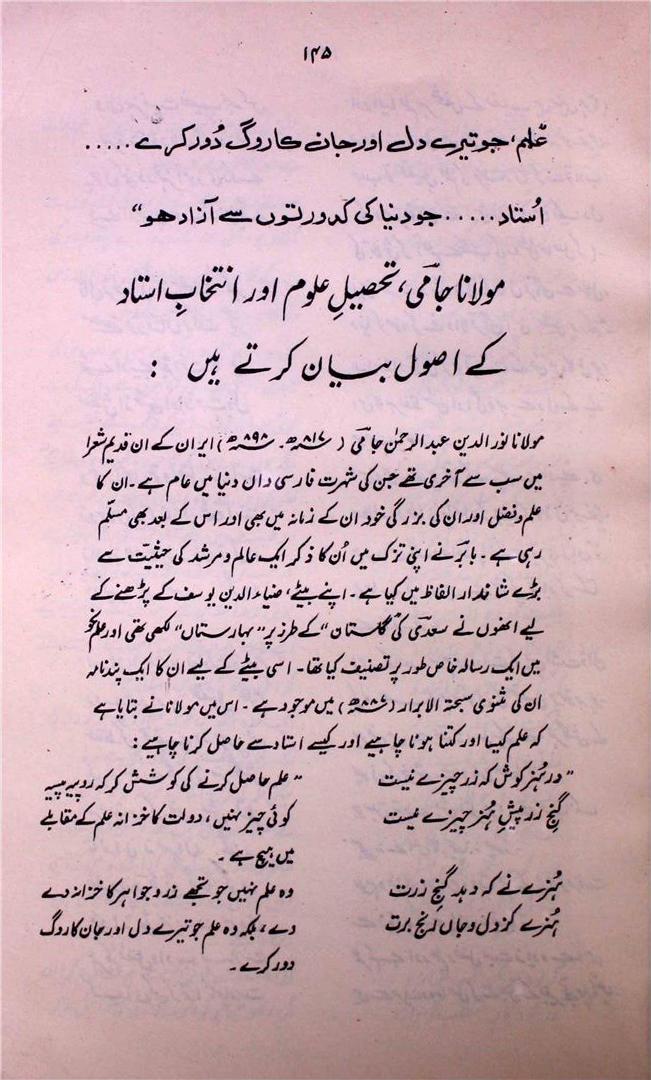 ۱۴۵
علم، جو تیرے دل اور جان کا روگ دور کرے .....
اُستاد ..... جو دنیا کی کدورتوں سے آزاد ہو"
مولانا جامیؒ، تحصیلِ علوم اور انتخابِ استاد
کے اصول بیان کرتے ہیں :
مولانا نور الدین عبدالرحمٰن جامیؒ (۸۱۷ھ۔ ۸۹۸ھ) ایران کے ان قدیم شعرا
میں سب سے آخری تھے جن کی شہرت فارسی داں دنیا میں عام ہے۔ ان کا
علم و فضل اور ان کی بزرگی خود ان کے زمانہ میں بھی اور اس کے بعد بھی مسلّم
رہی ہے۔ بابر نے اپنی تزک میں اُن کا ذکر ایک عالم و مرشد کی حیثیت سے
بڑے شاندار الفاظ میں کیا ہے۔ اپنے بیٹے، ضیاء الدین یوسف کے پڑھنے کے
لیے انھوں نے سعدیؒ کی گلستان "کے طرز پر" بہارستاں" لکھی تھی اور علم نحو
میں ایک رسالہ خاص طور پر تصنیف کیا تھا۔ اسی بیٹے کے لیے ان کا ایک پندنامہ
ان کی مثنوی سبحۃ الابرار (۸۸۷ھ) میں موجود ہے۔ اس میں مولانا نے بتایا ہے
کہ علم کیسا اور کتنا ہونا چاہیے اور کیسے استاد سے حاصل کرنا چاہیے :
"در ہُنر کوش کہ زر چیزے نیست
گنجِ زر پیشِ ہُنر چیزے نیست
ہُنرے نے کہ دہد گنجِ زرت
ہُنرے کز دل و جاں رنج برت
"علم حاصل کرنے کی کوشش کر کہ روپیہ پیسہ
کوئی چیز نہیں، دولت کا خزانہ علم کے مقابلے
میں ہیچ ہے۔
وہ علم نہیں جو تجھے زر و جواہر کا خزانہ دے
دے، بلکہ وہ علم جو تیرے دل اور جان کا روگ
دور کرے۔